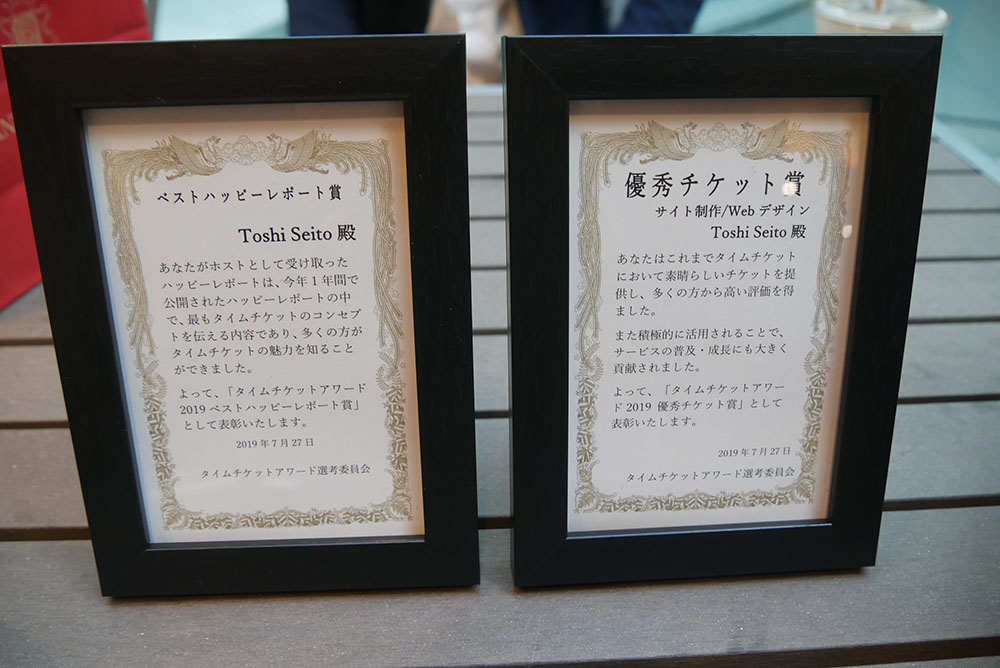 ベストハッピーレポート賞
Toshi Seito 殿
あなたがホストとして受け取った
ハッピーレポートは、今年1年間で
公開されたハッピーレポートの中
で、最もタイムチケットのコンセプ
トを伝える内容であり、多くの方が
タイムチケットの魅力を知ること
ができました。
よって、「タイムチケットアワード
2019 ベストハッピーレポート賞」
として表彰いたします。
2019年7月27日
タイムチケットアワード選考委員会
優秀チケット賞
サイト制作/Webデザイン
Toshi Seito 殿
あなたはこれまでタイムチケット
において素晴らしいチケットを提
供し、多くの方から高い評価を得
ました。
また積極的に活用されることで、
サービスの普及・成長にも大きく
貢献されました。
よって、「タイムチケットアワー
ド2019 優秀チケット賞」として
表彰いたします。
2019年7月27日
タイムチケットアワード選考委員会